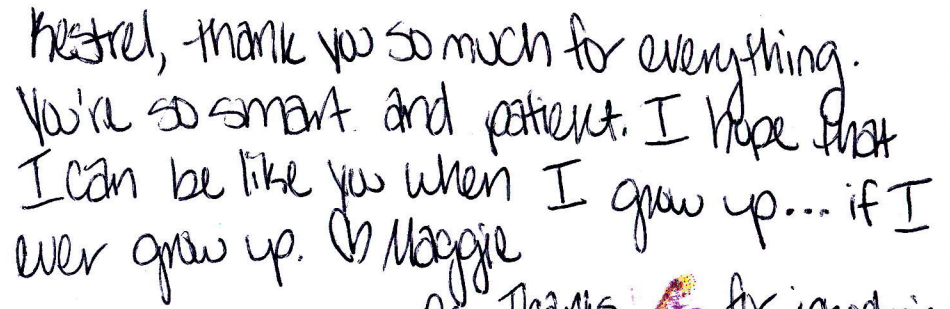 Kestrel, thank you so much for everything.
You're so smart and patient. I hope that
I can be like you when I grow up... if I
ever grow up. ♡ Maggie
Thanks for